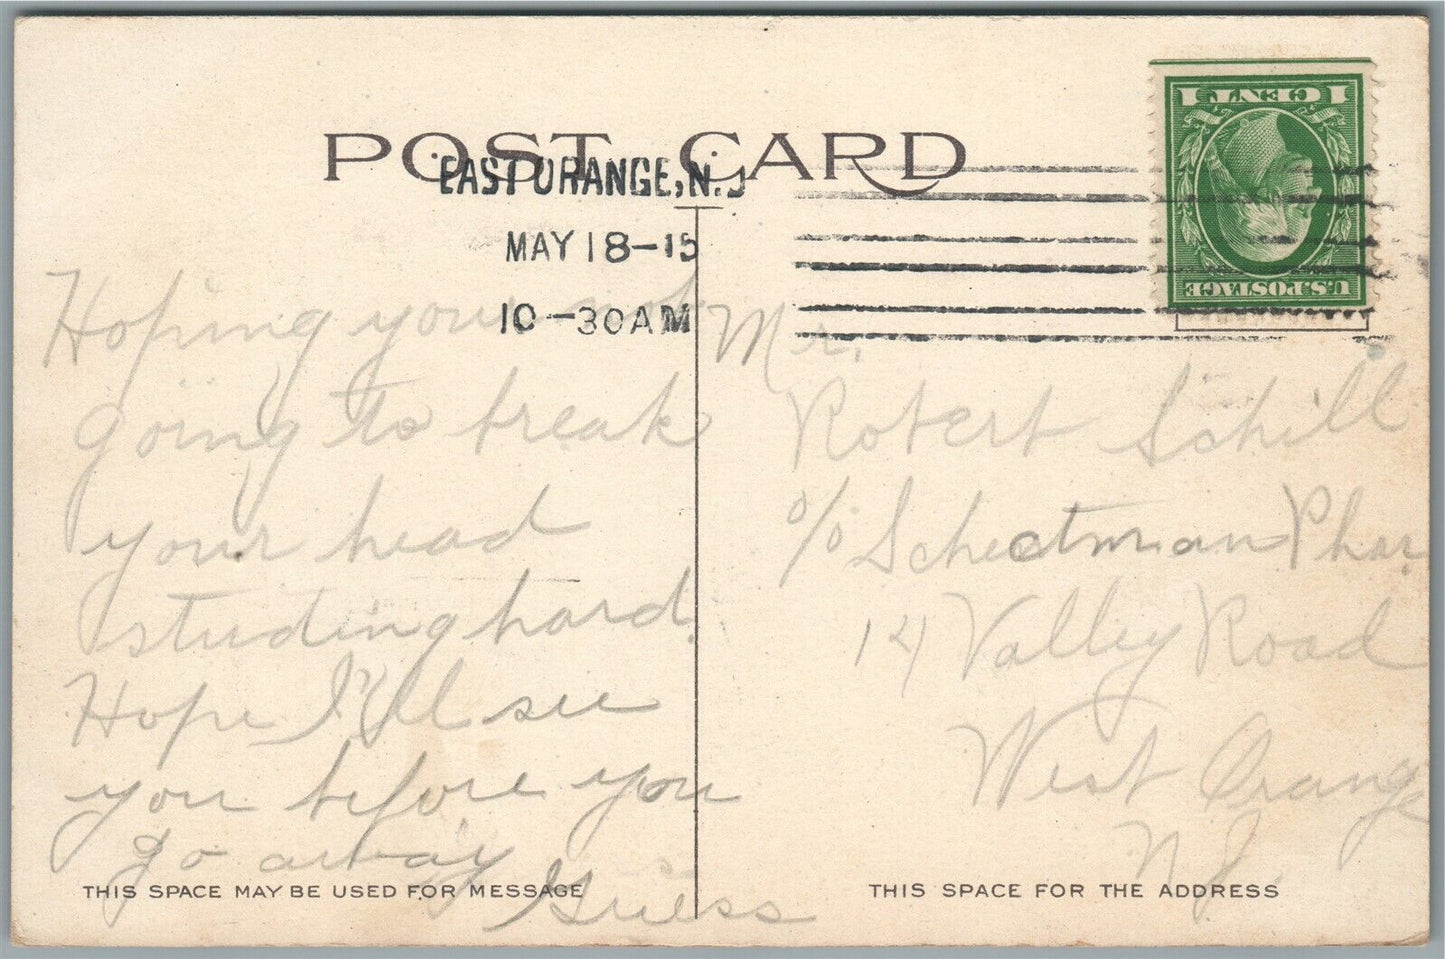 POST CARD
EAST ORANGE, N.J
MAY 18-15
10-30AM
1 CENT 1
U.S. POSTAGE
Hoping your not
going to break
your head
studing hard.
Hope I'll see
you before you
go away
Guess
Mr.
Robert Schill
c/o Schectman Phar.
14 Valley Road
West Orange
N.J.
THIS SPACE MAY BE USED FOR MESSAGE
THIS SPACE FOR THE ADDRESS